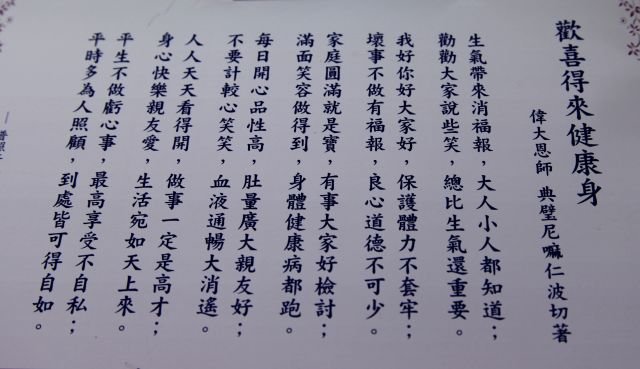 歡喜得來健康身
偉大恩師 典璧尼嘛仁波切著
生氣帶來消福報，大人小人都知道；
勸勸大家說些笑，總比生氣還重要。
我好你好大家好，保護體力不套牢；
壞事不做有福報，良心道德不可少。
家庭圓滿就是寶，有事大家好檢討；
滿面笑容做得到，身體健康病都跑。
每日開心品性高，肚量廣大親友好；
不要計較心笑笑，血液通暢大消遙。
人人天天看得開，做事一定是高才；
身心快樂親友愛，生活宛如天上來。
平生不做虧心事，最高享受不自私；
平時多為人照顧，到處皆可得自如。